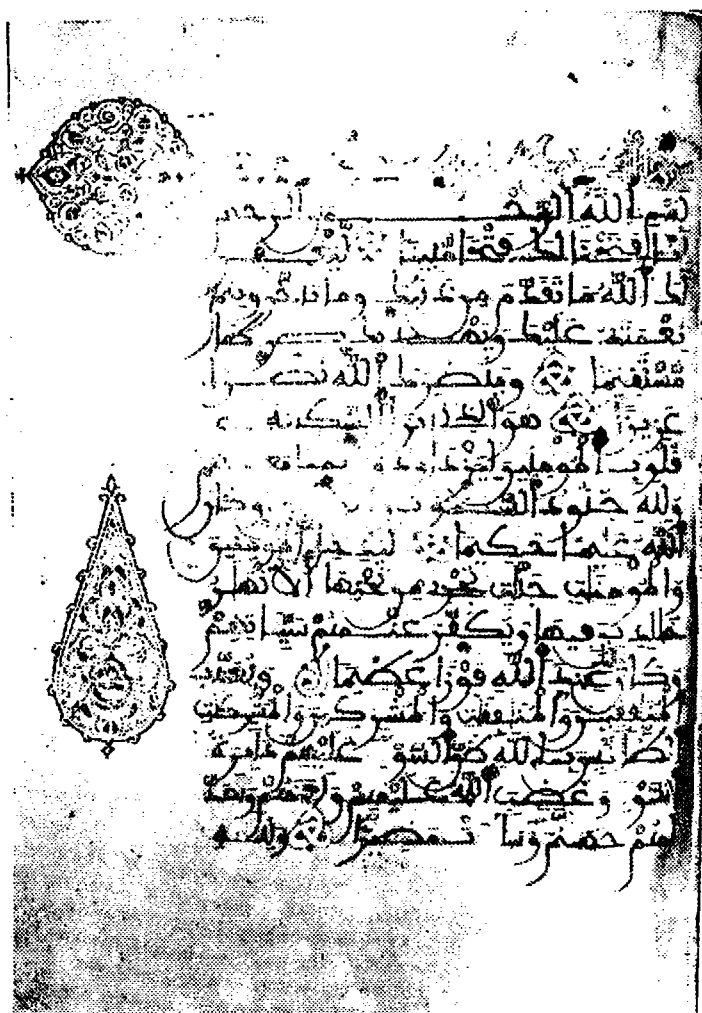 بسم الله الرحمن الرحيم
إنا فتحنا لك فتحا مبينا ليغفر
لك الله ما تقدم من ذنبك وما تأخر ويتم
نعمته عليك ويهديك صرطا
مستقيما وينصرك الله نصرا
عزيزا هو الذي أنزل السكينة في
قلوب المؤمنين ليزدادوا إيمنا مع
ولله جنود السموت وكان
الله عليما حكيما ليدخل المؤمنين
والمؤمنت جنت تجري من تحتها الأنهر
خلدين فيها ويكفر عنهم سيئاتهم
وكان عند الله فوزا عظيما ويعذب
المنفقين والمنفقت والمشركين والمشركت
الظانين بالله ظن السوء عليهم دائرة
السوء وغضب الله عليهم ولعنهم وأعد
لهم جهنم وساءت مصيرا ولله